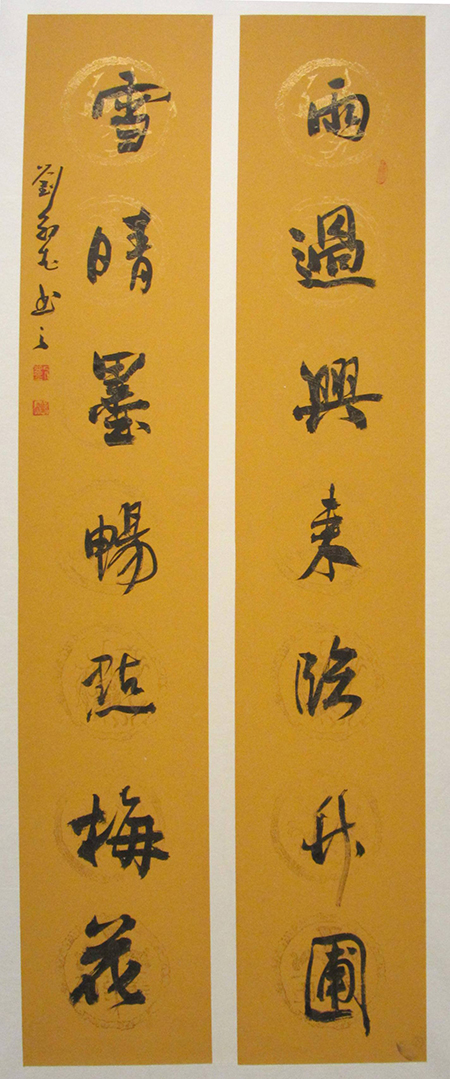 雨過興來臨竹圃
雪晴墨暢點梅花
劉 書之